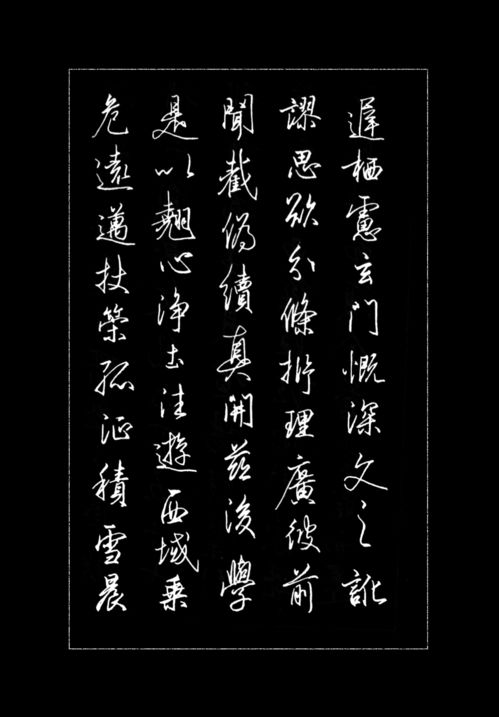 遲栖慮玄門慨深文之訛
謬思欲分條析理廣彼前
聞截偽續真開茲後學
是以翹心淨土往遊西域乘
危遠邁杖策孤征積雪晨